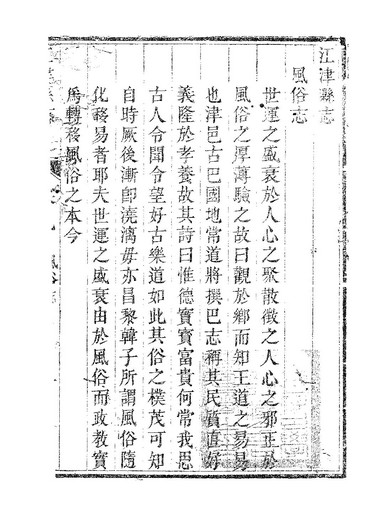 江津縣志
風俗志
世運之盛衰於人心之聚散徵之人心之邪正於
風俗之厚薄驗之故曰觀於鄉而知王道之易易
也津邑古巴國地常道將撰巴志稱其民質直好
義隆於孝養故其詩曰惟德實寶富貴何常我思
古人令聞令望好古樂道如此其俗之樸茂可知
自時厥後漸卽澆漓毋亦昌黎韓子所謂風俗隨
化移易者耶夫世運之盛衰由於風俗而政教實
爲轉移風俗之本今